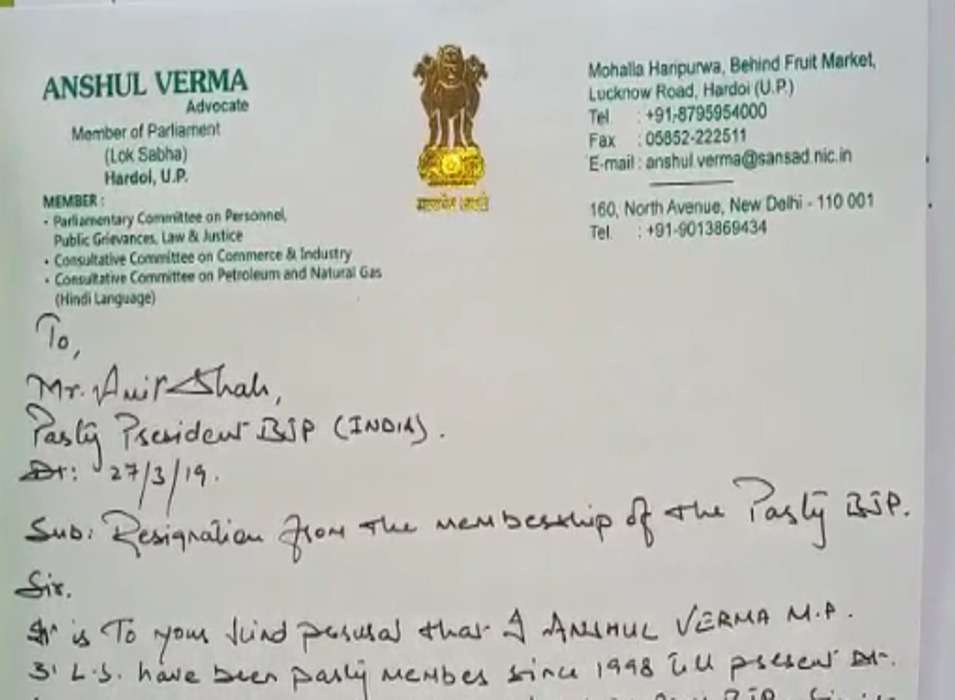 ANSHUL VERMA
Advocate
Member of Parliament
(Lok Sabha)
Hardoi, U.P.
MEMBER :
• Parliamentary Committee on Personnel,
Public Grievances, Law & Justice
• Consultative Committee on Commerce & Industry
• Consultative Committee on Petroleum and Natural Gas
(Hindi Language)
सत्यमेव जयते
Mohalla Haripurwa, Behind Fruit Market,
Lucknow Road, Hardoi (U.P.)
Tel : +91-8795954000
Fax : 05852-222511
E-mail : anshul.verma@sansad.nic.in
160, North Avenue, New Delhi - 110 001
Tel : +91-9013869434
To,
Mr. Amit Shah,
Party President BJP (INDIA).
Dt: 27/3/19.
Sub: Resignation from the membership of the Party BJP.
Sir.
It is To your kind perusal that I ANSHUL VERMA M.P.
31 L.S. have been party member since 1998 till present Dt.
BJP